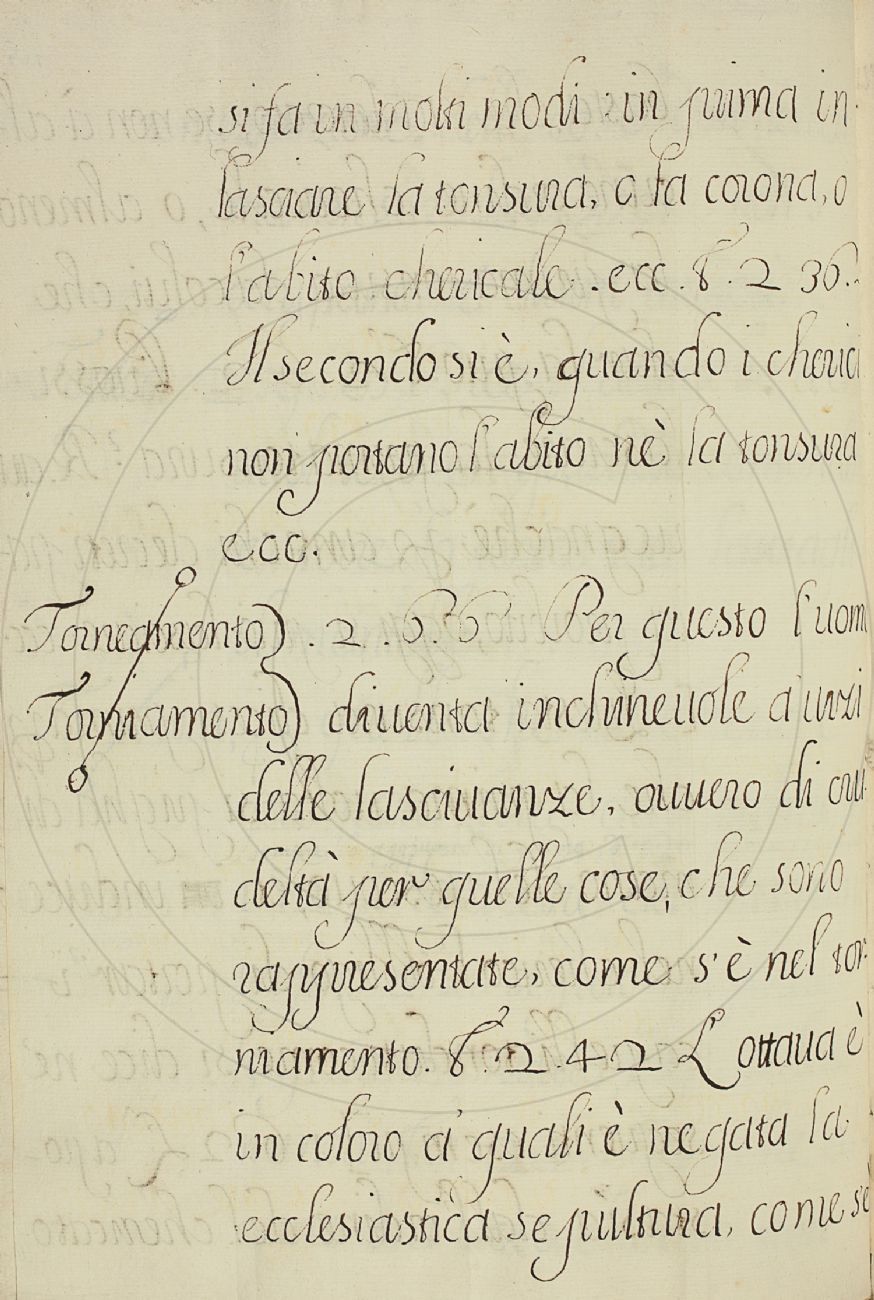 si fa in molti modi: in prima in
lasciare la tonsura, o la corona, o
l'abito chericale. ecc. 8. 2 36.
Il secondo si è, quando i cherici
non portano l'abito nè la tonsura
ecc.
Torneamento) . 2 . 6. 6 Per questo l'uom
Torniamento) diventa inchinevole a' vizi
delle lascivanze, ovvero di cru
deltà per quelle cose, che sono
rappresentate, come s'è nel tor
niamento. 8. 2. 42 L'ottava è
in coloro a' quali è negata la
ecclesiastica sepultura, come s'è